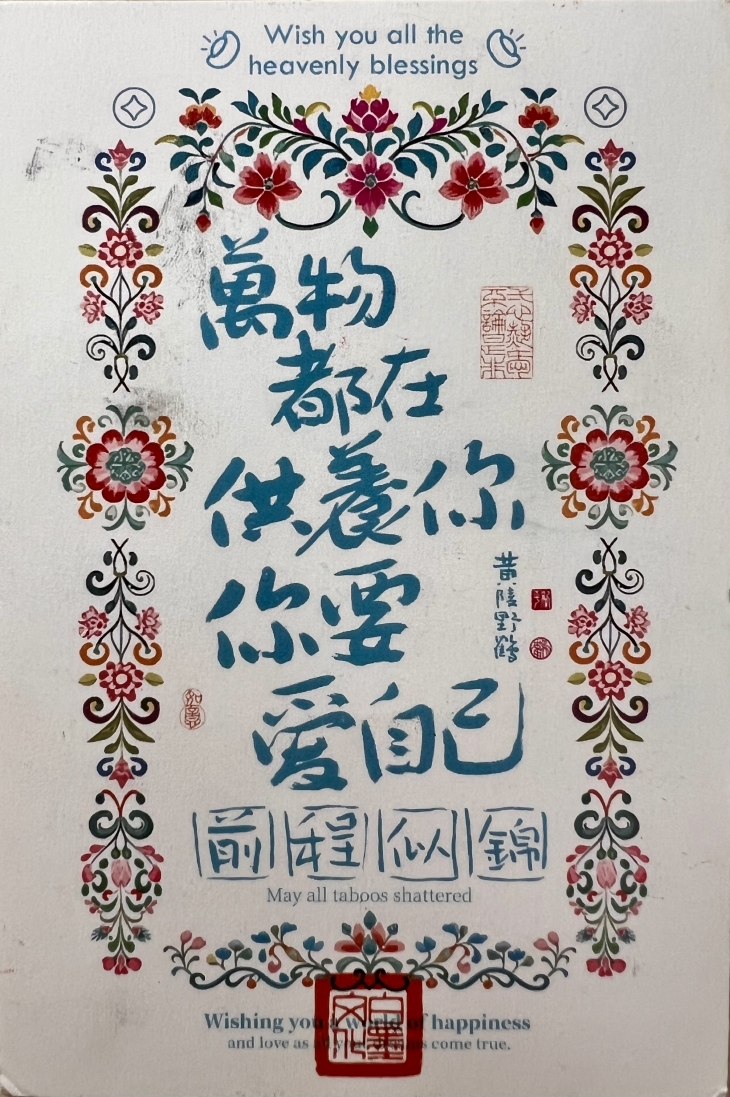 Wish you all the
heavenly blessings
萬物
都在
供養你
你要
愛自己
黄陵野鶴
如意
前程似錦
May all taboos shattered
Wishing you a world of happiness
and love as all your dreams come true.